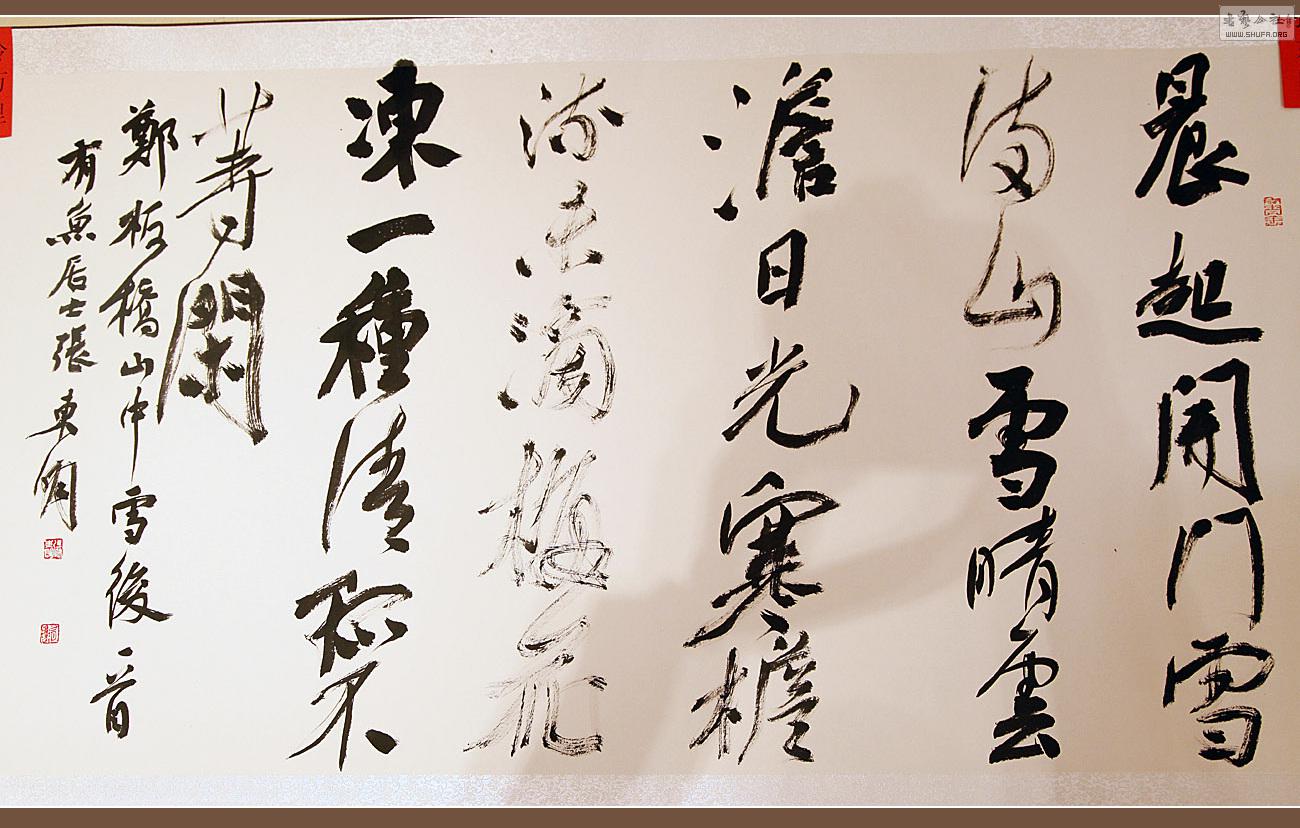 晨起開門雪
滿山雪晴雲
澹日光寒檐
流未滴梅花
凍一種清孤不
等閑
鄭板橋山中雪後一首
有魚居士張東明
WWW.SHUFA.ORG